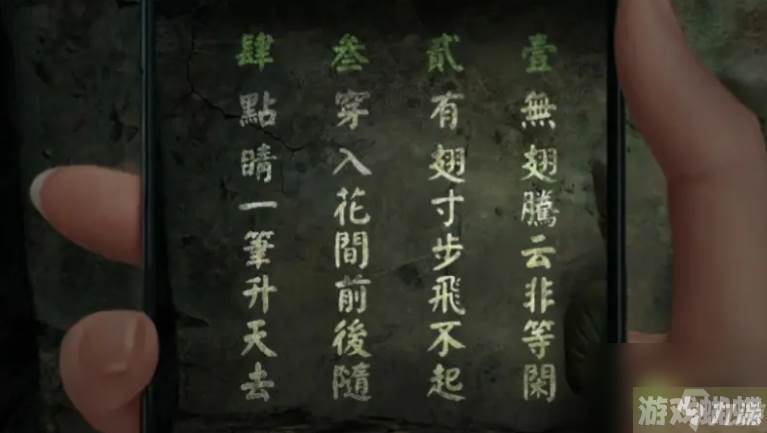 壹 無翅騰云非等閑
貳 有翅寸步飛不起
叁 穿入花間前後隨
肆 點睛一筆升天去
游戏蝴蝶
九游